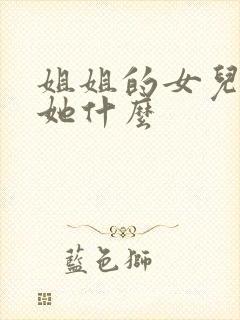 姐姐的女兒
她什麼
藍色獅